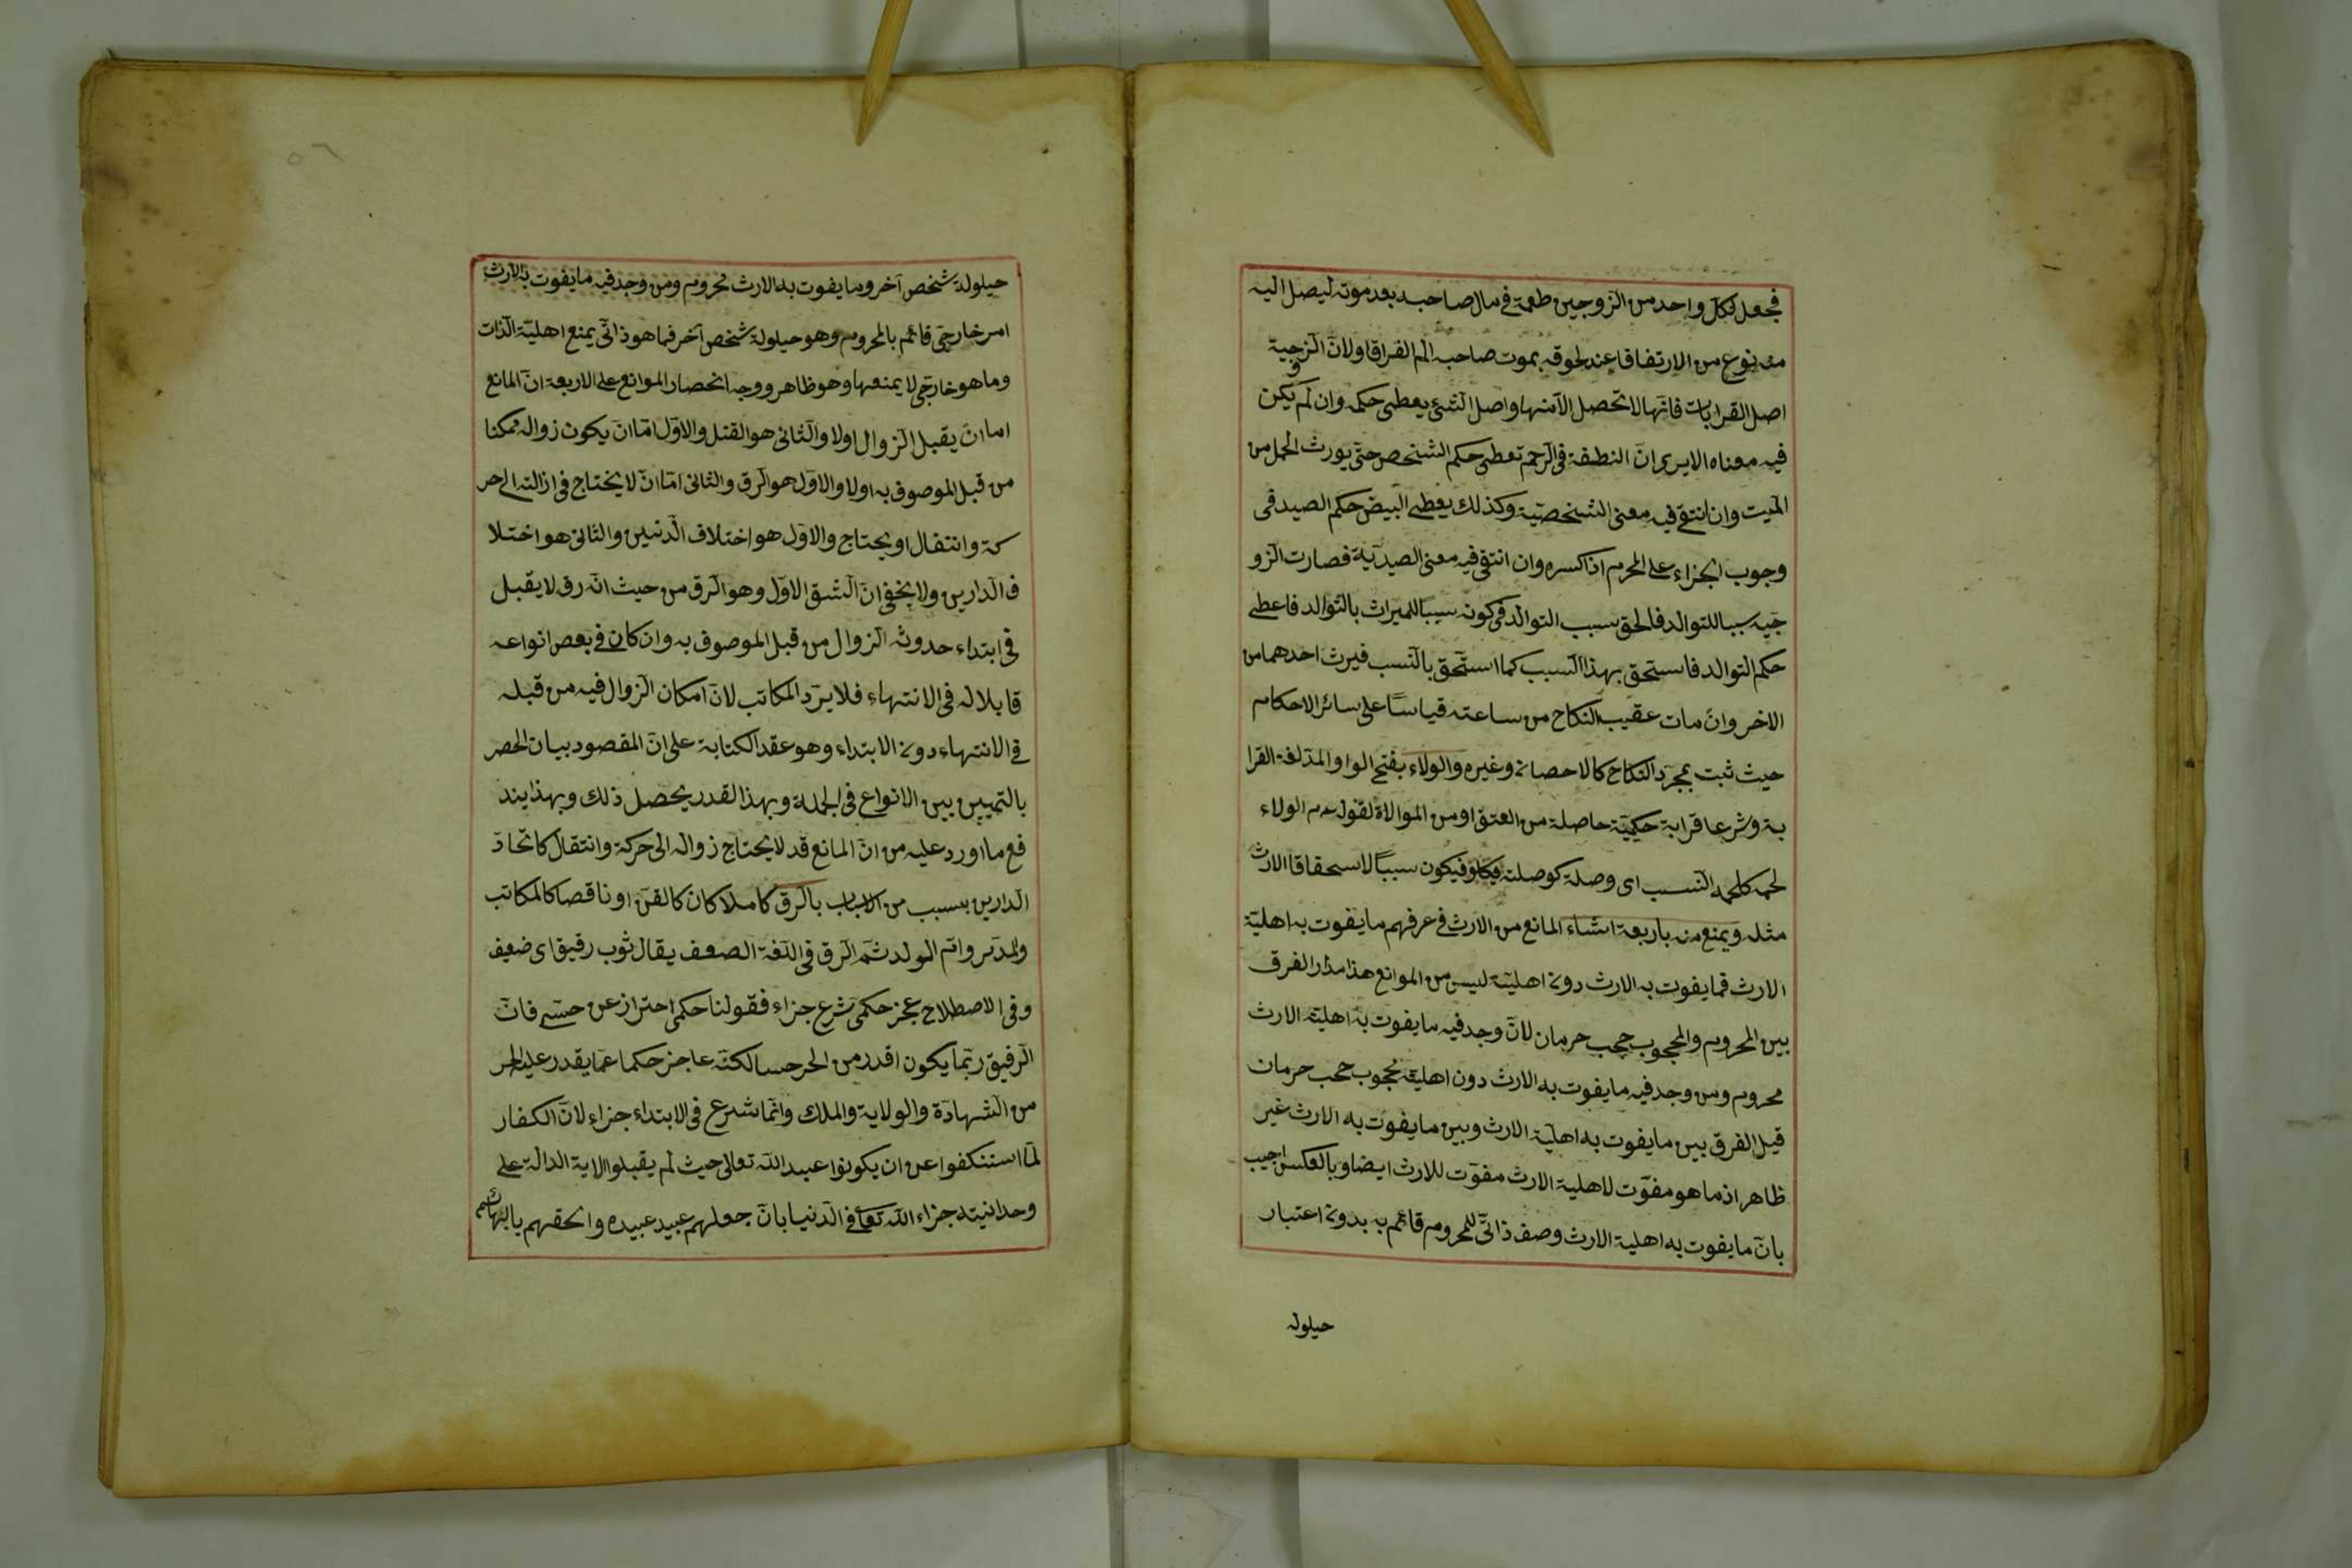 فجعل لكل واحد من الزوجين طعمة في مال صاحبه بعد موته ليصل اليه
منه نوع من الارتفاقا عند لحوقه بموت صاحبه الم الفراقا ولان الزوجية
اصل القرابات فانها لا تحصل الا منها واصل الشئ يعطى حكمه وان لم يكن
فيه معناه الا يرى ان النطفة في الرحم تعطى حكم الشخص حتى يورث الحمل من
الميت وان انتفى فيه معنى الشخصية وكذلك يعطى البيض حكم الصيد في
وجوب الجزاء على المحرم اذا كسره وان انتفى فيه معنى الصيدية فصارت الزو
جيه سببا للتوالد فالحق بسبب التوالد في كونه سببا للميراث بالتوالد فاعطى
حكم التوالد فاستحق بهذا السبب كما استحق بالنسب فيرث احدهما من
الاخر وان مات عقيب النكاح من ساعته قياسا على سائر الاحكام
حيث ثبت بمجرد النكاح كالاحصان وغيره والولاء بفتح الواو والمد لغة القرا
بة وشرعا قرابة حكمية حاصلة من العتق او من الموالاة لقوله عم الولاء
لحمه كلحمة النسب اى وصلة كوصلته فيكون سببا لاستحقاقا الارث
مثله ويمنع منه باربعة اشياء المانع من الارث في عرفهم ما يفوت به اهلية
الارث فما يفوت به الارث دون اهلية ليس من الموانع هذا مدار الفرق
بين المحروم والمحجوب حجب حرمان لان وجد فيه ما يفوت به اهلية الارث
محروم ومن وجد فيه ما يفوت به الارث دون اهلية محجوب حجب حرمان
قيل الفرق بين ما يفوت به اهلية الارث وبين ما يفوت به الارث غير
ظاهر اذ ما هو مفوت لاهلية الارث مفوت للارث ايضا وبالعكس اجيب
بان ما يفوت به اهلية الارث وصف ذاتى للمحروم قائم به بدون اعتبار
حيلولة
حيلولة شخص آخر وما يفوت به الارث محروم ومن وجد فيه ما يفوت به الارث
امر خارجى قائم بالمحروم وهو حيلولة شخص آخر فما هو ذاتى يمنع اهلية الذات
وما هو خارجى لا يمنعها وهو ظاهر ووجه انحصار الموانع على الاربعة ان المانع
اما ان يقبل الزوال اولا والثانى هو القتل والاول اما ان يكون زواله ممكنا
من قبل الموصوف به اولا والاول هو الرق والثانى اما ان لا يحتاج فى ازالته الى حر
كة وانتقال او يحتاج والاول هو اختلاف الدنيين والثانى هو اختلا
ف الدارين ولا يخفى ان الشق الاول وهو الرق من حيث انه رق لا يقبل
فى ابتداء حدوثه الزوال من قبل الموصوف به وان كان في بعض انواعه
قابلا له فى الانتهاء فلا يرد المكاتب لان امكان الزوال فيه من قبله
في الانتهاء دون الابتداء وهو عقد الكتابة على ان المقصود بيان الحصر
بالتميين بين الانواع فى الجملة وبهذا القدر يحصل ذلك وبهذا يند
فع ما اورد عليه من ان المانع قد لا يحتاج زواله الى حركة وانتقال كاتحاد
الدارين بسبب من الاسباب بالرق كاملا كان كالقن او ناقصا كالمكاتب
والمدبر وام الولد ثم الرق فى اللغة الضعف يقال ثوب رقيق اى ضعيف
وفى الاصطلاح عجز حكمى شرع جزاء فقولنا حكمى احتراز عن حسى فان
الرقيق ربما يكون اقدر من الحر حسا لكنه عاجز حكما عما يقدر عليه الحر
من الشهادة والولاية والملك وانما شرع فى الابتداء جزاء لان الكفار
لما استنكفوا عن ان يكونوا عبيد الله تعالى حيث لم يقبلوا الاية الدالة على
وحدانيته جزاء الله تعالى في الدنيا بان جعلهم عبيد عبيده والحقهم بالبهائم